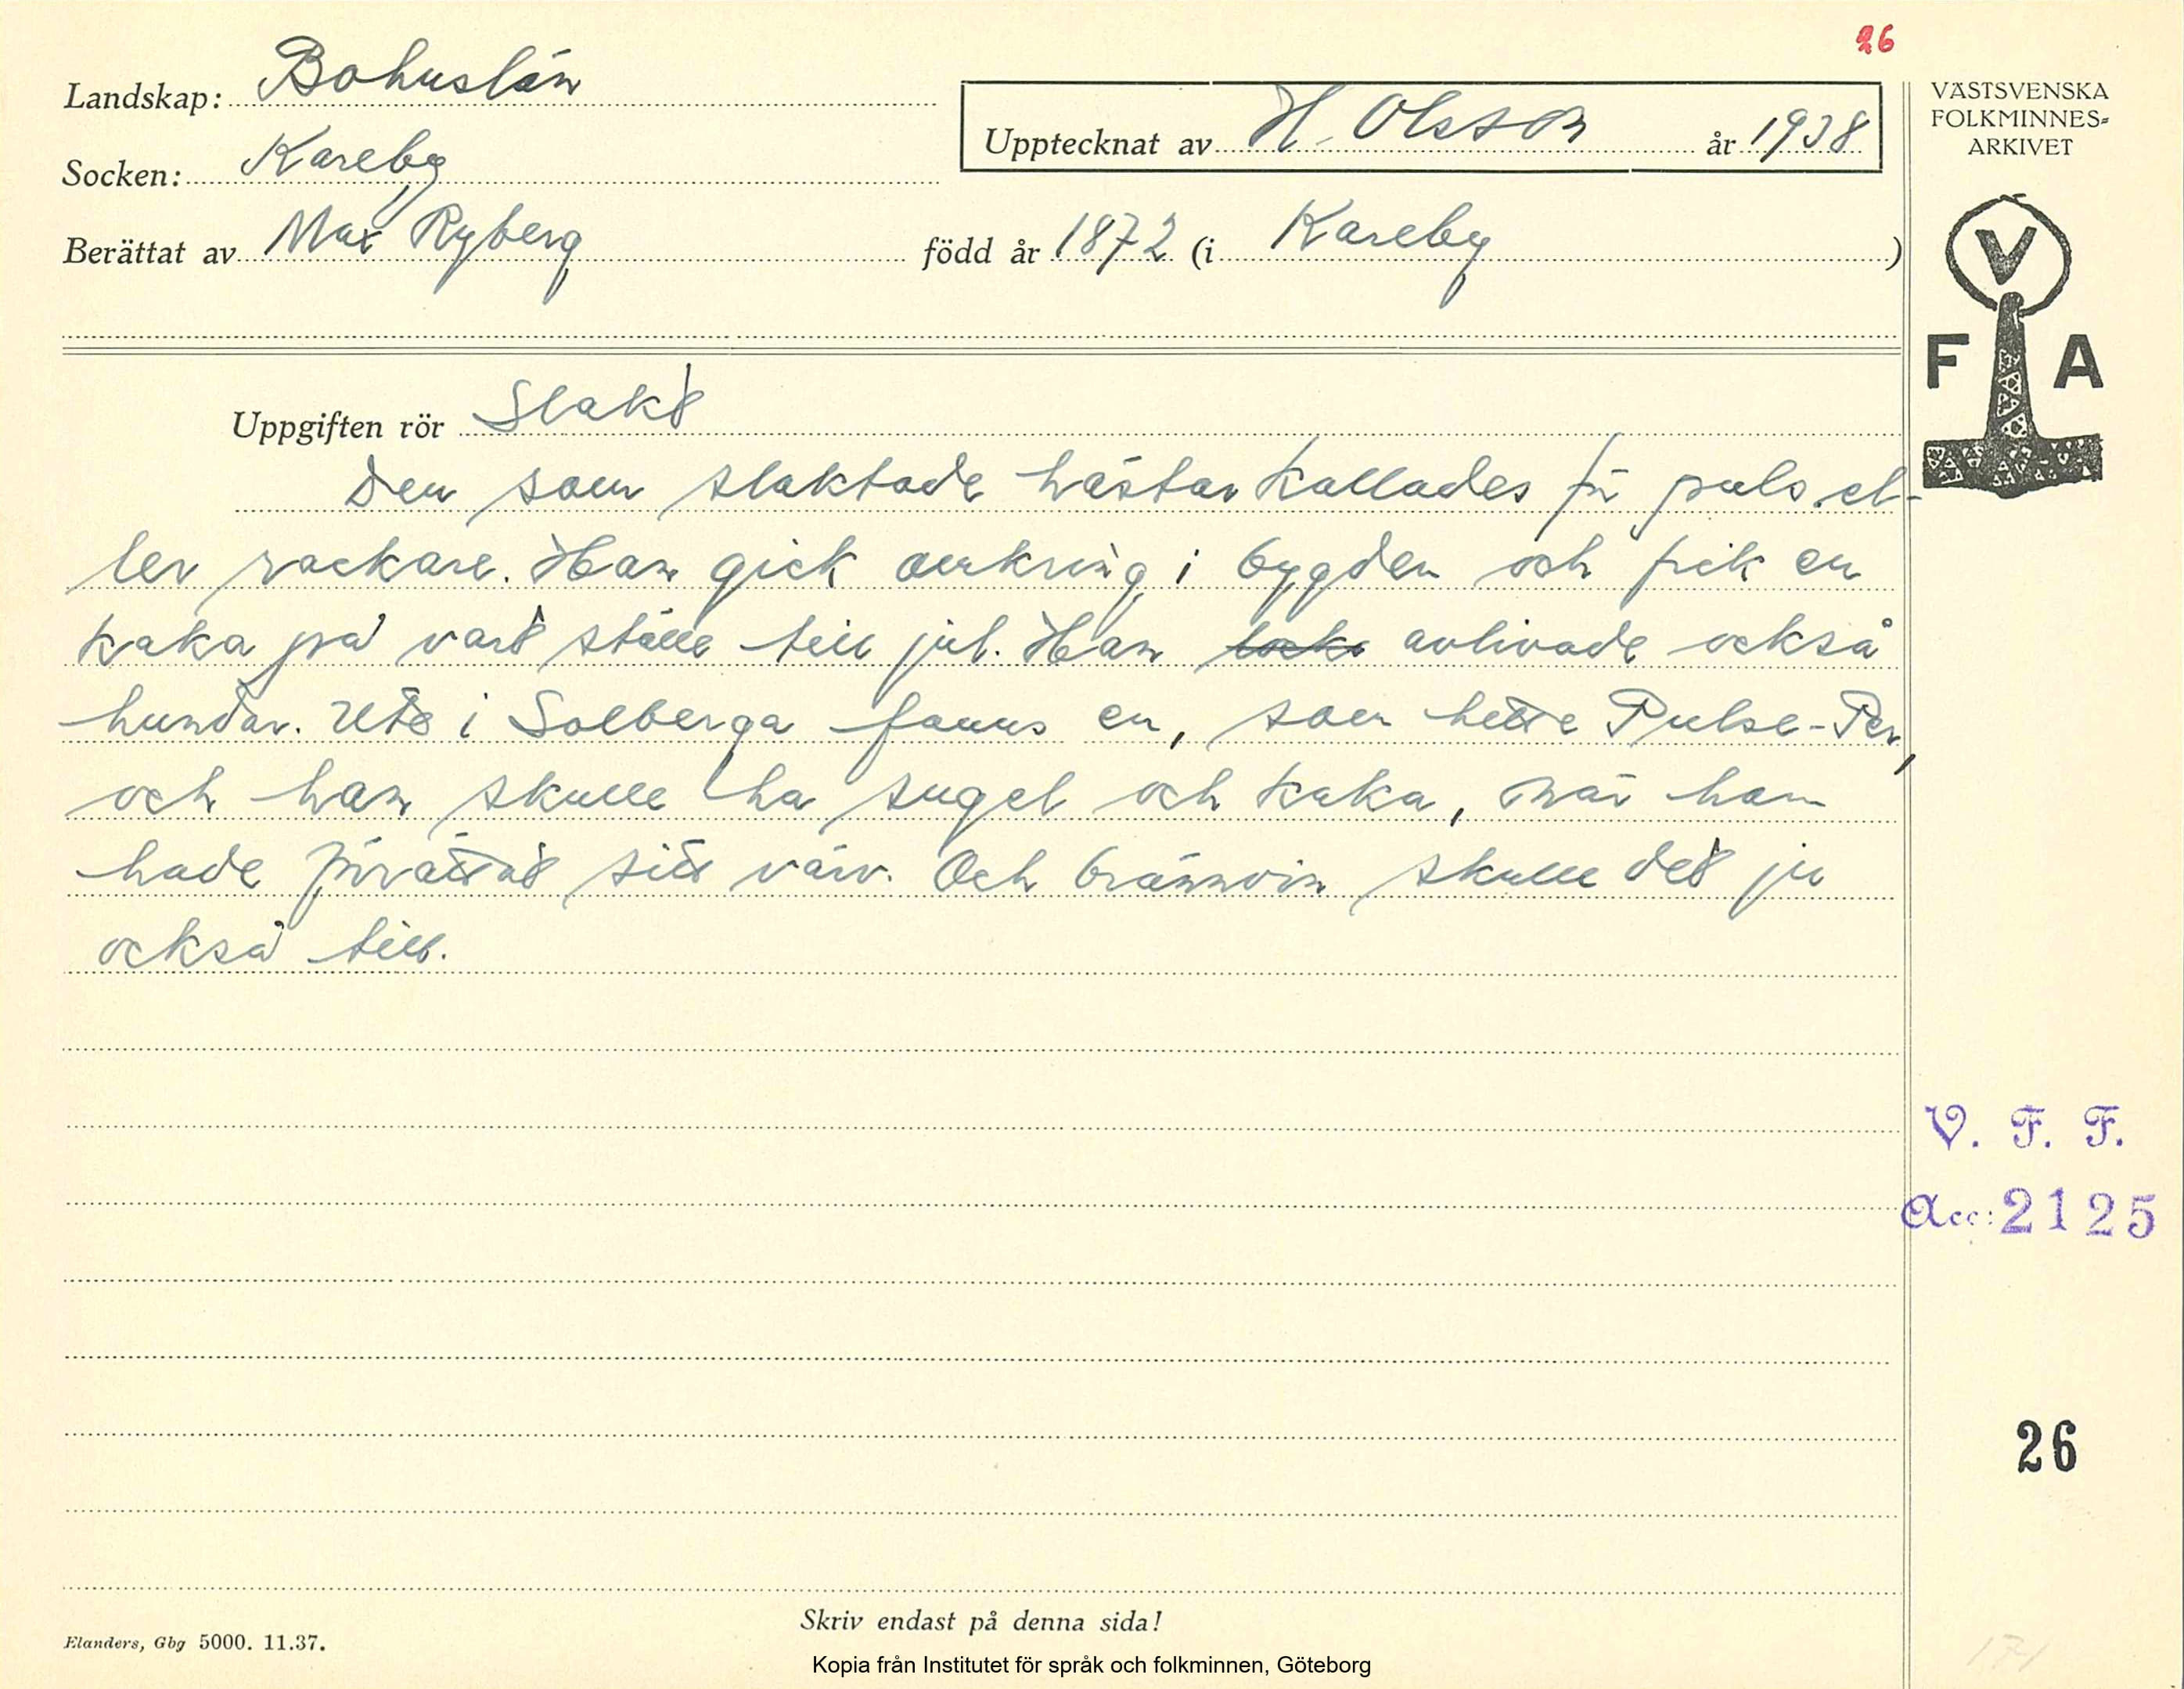 26
Landskap: Bohuslän
Socken: Kareby
Berättat av Max Ryberg född år 1872 (i Kareby)
Upptecknat av H. Olsson år 1938
VÄSTSVENSKA
FOLKMINNES-
ARKIVET
V
F A
Uppgiften rör Slakt
Den som slaktade hästar kallades för puls el-
ler rackare. Han gick omkring i bygden och fick en
kaka på vart ställe till jul. Han avlivade också
hundar. Ute i Solberga fanns en, som hette Pulse-Per,
och han skulle ha sugel och kaka, när han
hade förrättat sitt värv. Och brännvin skulle det ju
också till.
V. F. F.
Acc: 2125
26
Skriv endast på denna sida!
Elanders, Gbg 5000. 11.37.
Kopia från Institutet för språk och folkminnen, Göteborg